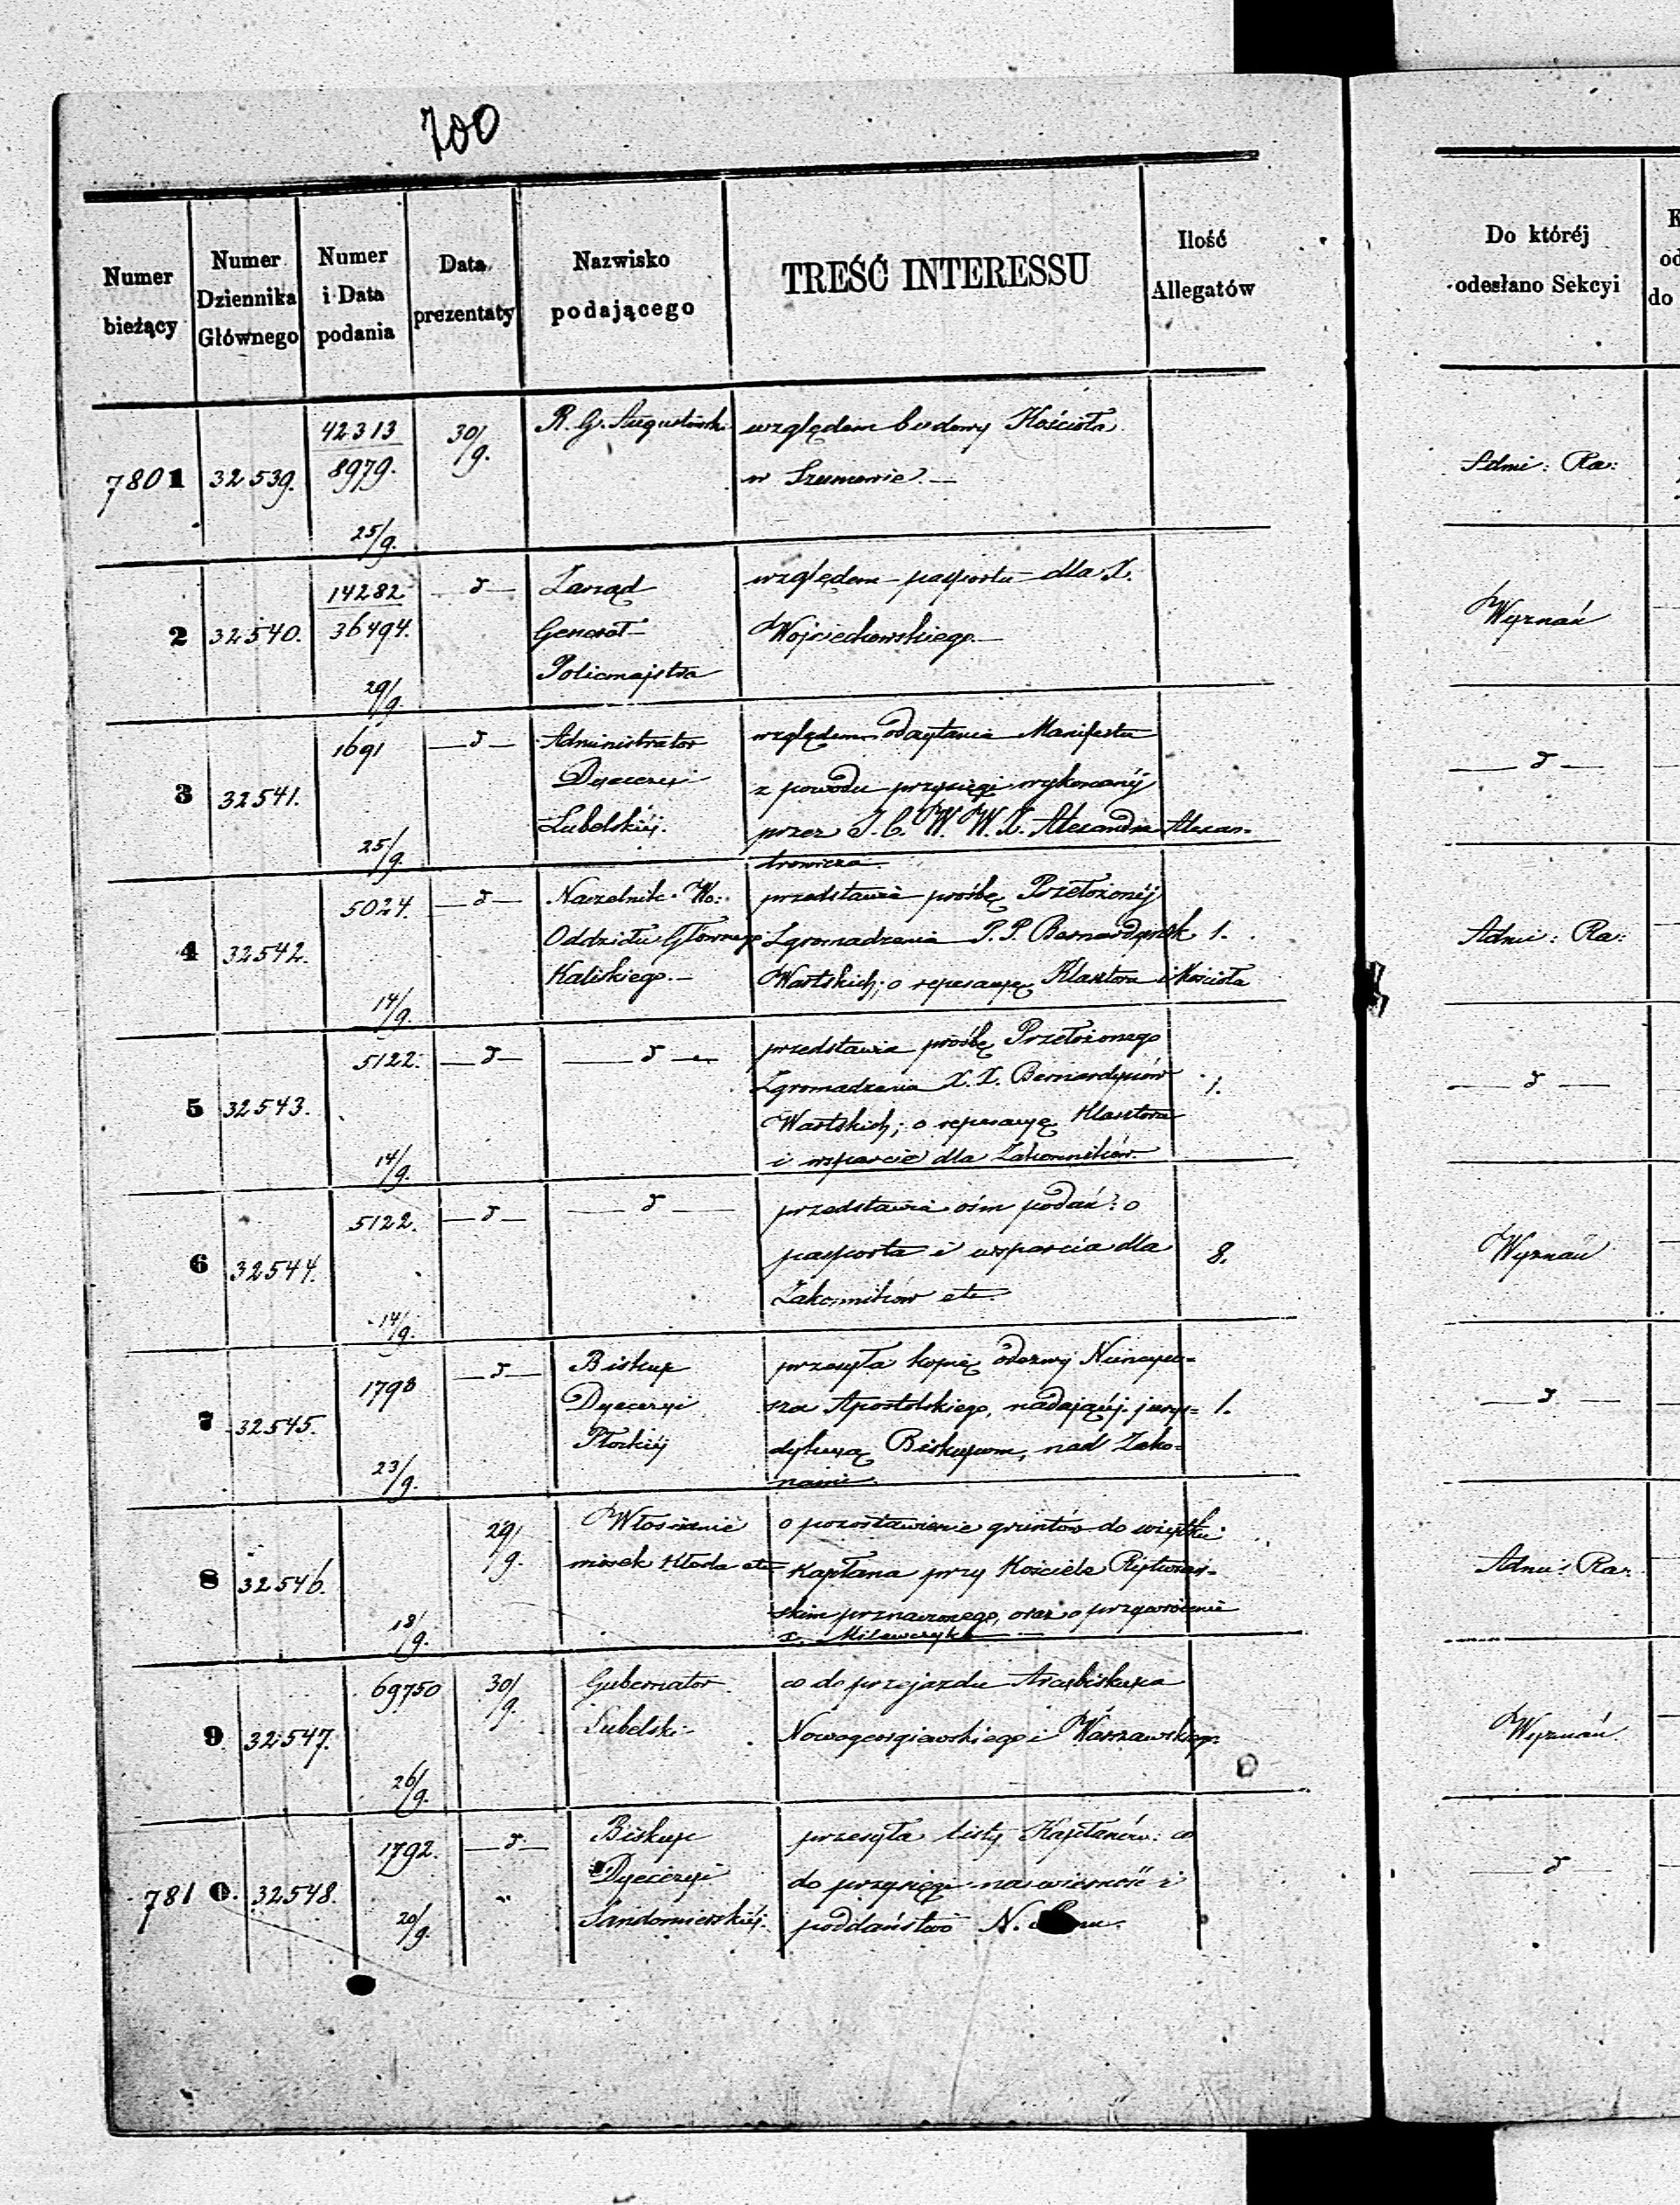 700
Numer bieżący
Numer Dziennika Głównego
Numer i Data podania
Data prezentaty
Nazwisko podającego
TREŚĆ INTERESSU
Ilość Allegatów
Do któréj odesłano Sekcyi
7801 32539. 42313 8979. 25/9. 30/9. R. G. Augustowski względem budowy Kościoła
w Szumowie. —
Admi: Ra:
2 32540. 14282 36494. 29/9 — d — Zarząd względem pasportu dla X.
Generał- Wojciechowskiego. —
Policmajstra
Wyznań
3 32541. 1691 25/9. — d — Administrator względem odczytania Manifestu
Dyecezyi z powodu przysięgi wykonanéj
Lubelskiéj. przez J. C. W. W. X. Alexandra Alexan-
drowicza.
— d —
4 32542. 5024. 14/9. — d — Naczelnik Wo: przedstawia prośbę Przełożonéj
Oddziału Głównego Zgromadzenia P. P. Bernardynek 1.
Kaliskiego. — Wartskich; o reperacyę Klasztoru i Kościoła
Admi: Ra:
5 32543. 5122. 14/9. — d — — d — przedstawia prośbę Przełożonego
Zgromadzenia X. X. Bernardynów 1.
Wartskich; o reperacyę Klasztoru
i wsparcie dla Zakonników.
— d —
6 32544. 5122. 14/9. — d — — d — przedstawia ośm podań: o
pasporta i wsparcia dla 8.
Zakonników etc.
Wyznań
7 32545. 1798 23/9. — d — Biskup przesyła kopię odezwy Nuncyu-
Dyecezyi sza Apostolskiego, nadającéj jurys- 1.
Płockiéj dykcyą Biskupom, nad Zako-
nami.
— d —
8 32546. 18/9. 29/9. Włościanie o pozostawienie gruntów do użytku
wiosek Kłoda etc Kapłana przy Kościele Rytwiań-
skim przeznaczonego, oraz o przywrócenie
x. Milewczyka —
Admi: Ra:
9 32547. 69750 26/9. 30/9. Gubernator co do przejazdu Arcybiskupa
Lubelski Nowogeorgiewskiego i Warszawskiego.
Wyznań
7810. 32548. 1792. 20/9. — d — Biskup przesyła listy Kapłanów: co
Dyecezyi do przysięgi na wierność i
Sandomierskiéj. poddaństwo N. Panu.
— d —